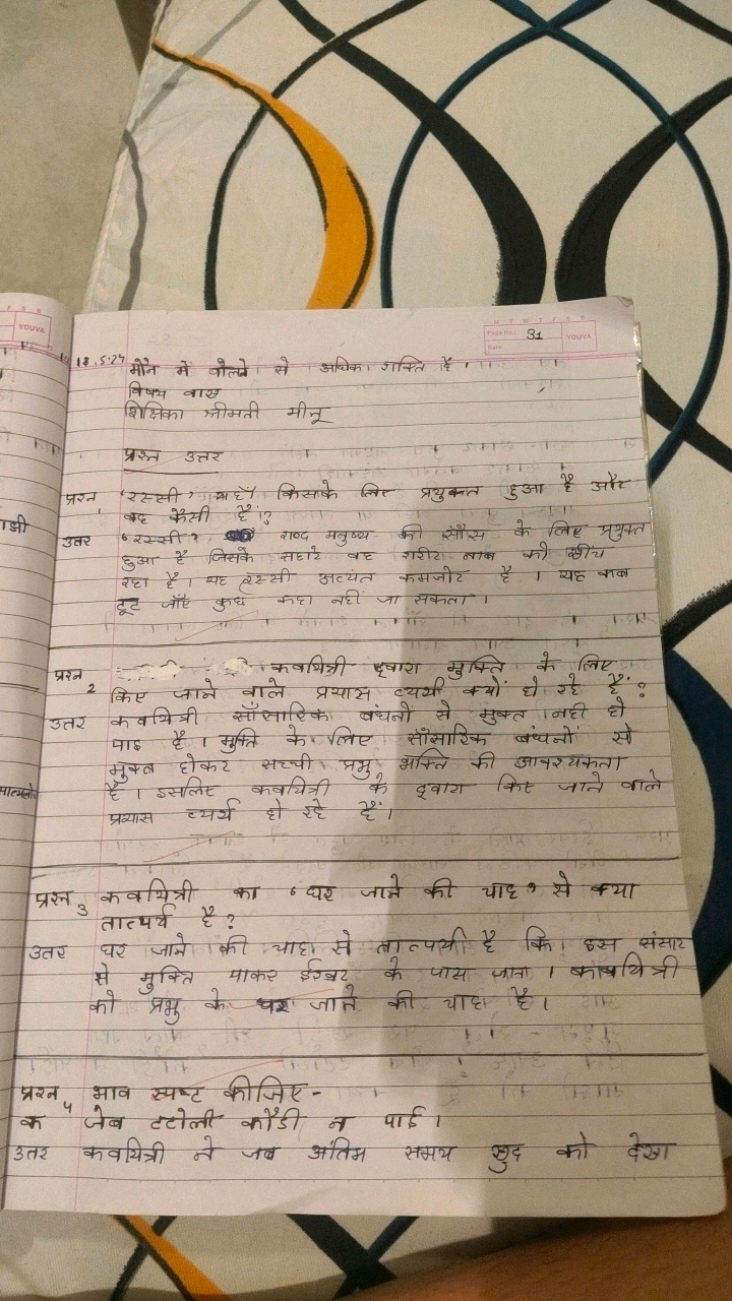 YOUVA
Page No.: 31
Date:
YOUVA
18.5.24
मौन में बोलने से अधिक शक्ति है।
विषय वाख
शिक्षिका श्रीमती मीनू
प्रश्न उत्तर
प्रश्न 1 'रस्सी' यहाँ किसके लिए प्रयुक्त हुआ है और
वह कैसी है?
उत्तर 'रस्सी' शब्द मनुष्य की साँस के लिए प्रयुक्त
हुआ है जिसके सहारे वह शरीर नाव को खींच
रहा है। यह रस्सी अत्यंत कमजोर है। यह कब
टूट जाए कुछ कहा नहीं जा सकता।
प्रश्न 2 कवयित्री द्वारा मुक्ति के लिए
किए जाने वाले प्रयास व्यर्थ क्यों हो रहे हैं?
उत्तर कवयित्री साँसारिक बंधनों से मुक्त नही हो
पाइ है। मुक्ति के लिए साँसारिक बंधनों से
मुक्त होकर सच्ची प्रभु भक्ति की आवश्यकता
है। इसलिए कवयित्री के द्वारा किए जाने वाले
प्रयास व्यर्थ हो रहे हैं।
प्रश्न 3 कवयित्री का 'घर जाने की चाह' से क्या
तात्पर्य है?
उत्तर घर जाने की चाह से तात्पर्य है कि इस संसार
से मुक्ति पाकर ईश्वर के पास जाना। कवयित्री
को प्रभु के घर जाने की चाह है।
प्रश्न 4 भाव स्पष्ट कीजिए-
क जेब टटोली कौड़ी न पाई।
उत्तर कवयित्री ने जब अंतिम समय खुद को देखा